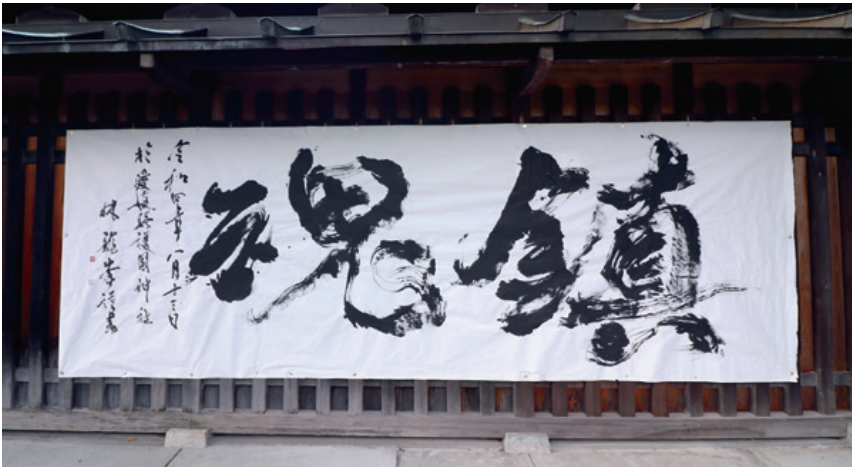 鎮魂
令和四年八月十三日
於愛媛縣護國神社
林龍峯